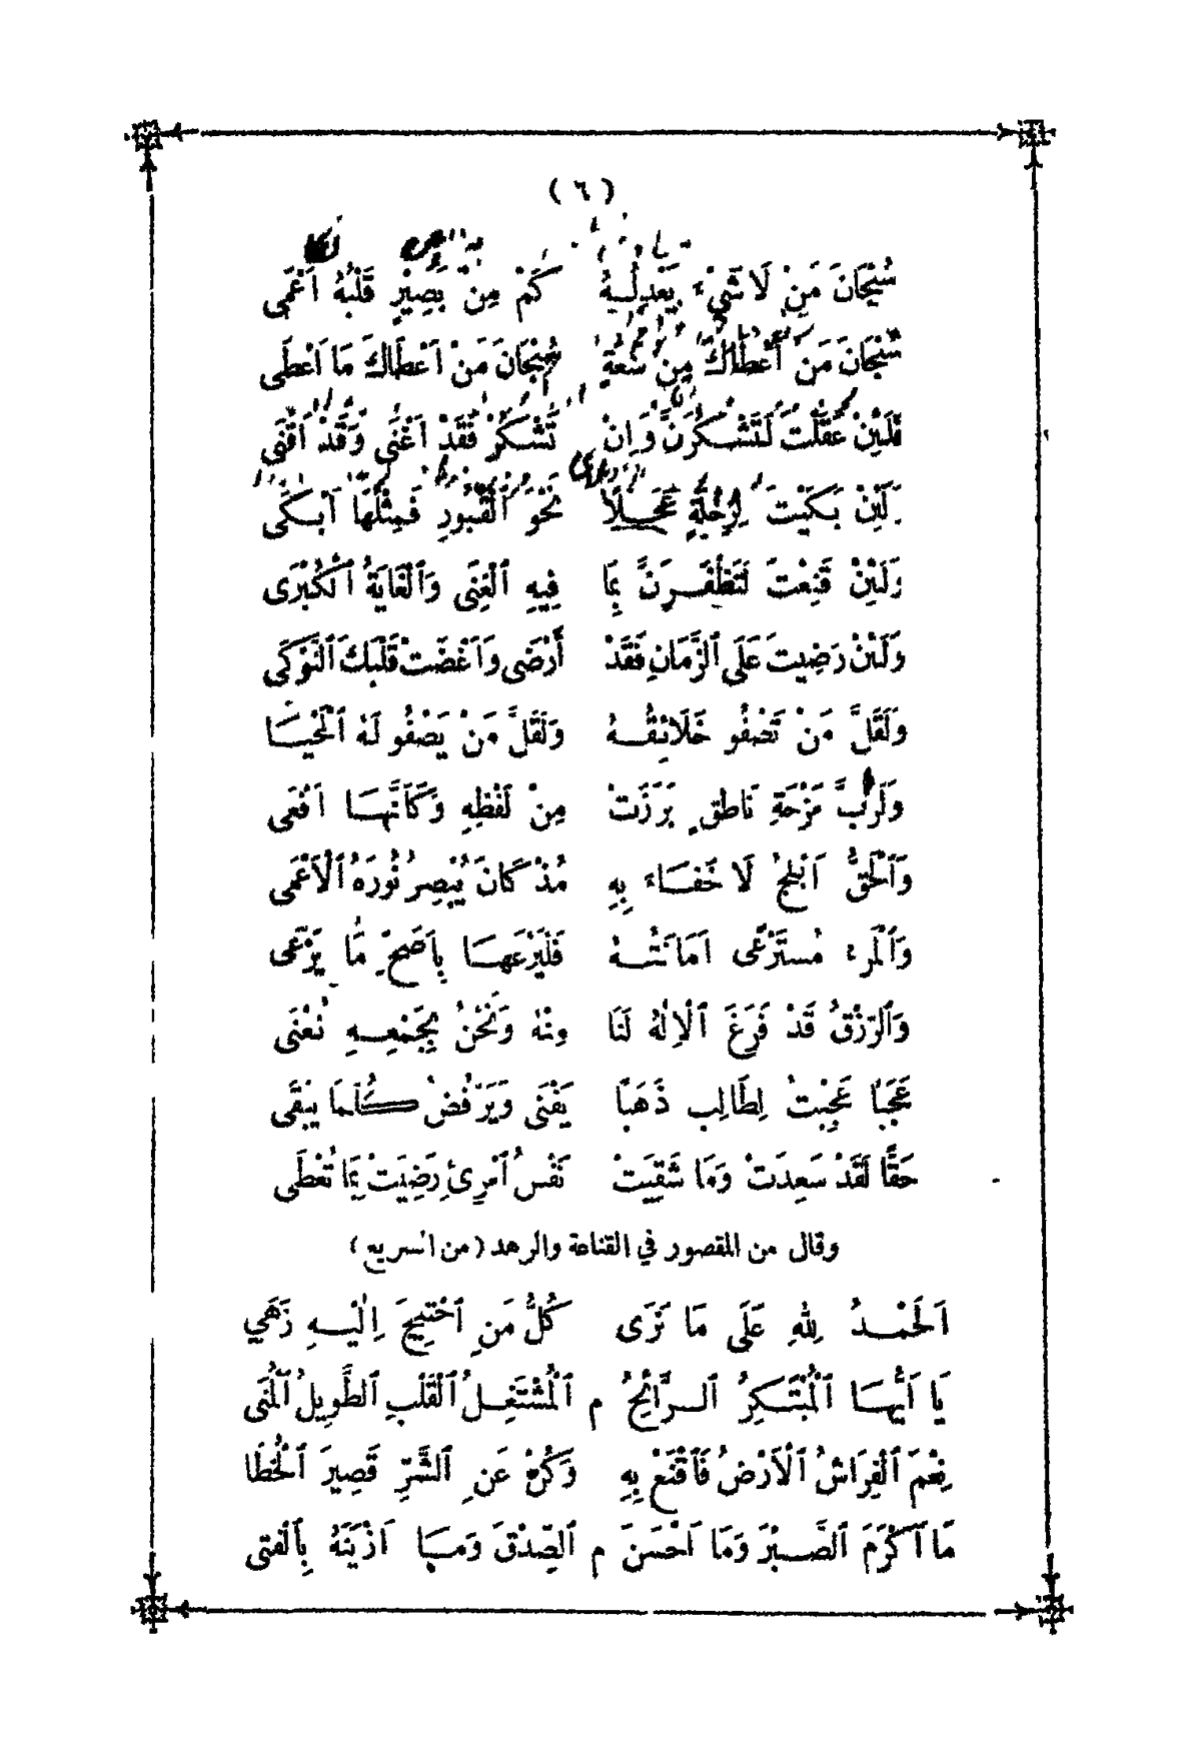 ( ٦ )
سُبْحَانَ مَنْ لَا شَيْءَ يَعْدِلُهُ كَمْ مِنْ بَصِيْرٍ قَلْبُهُ أَعْمَى
سُبْحَانَ مَنْ أَعْطَاكَ مِنْ سَعَةٍ سُبْحَانَ مَنْ اَعْطَاكَ مَا اَعْطَى
فَلَئِنْ عَقَلْتَ لَتَشْكُرَنَّ وَإِنْ تَشْكُرْ فَقَدْ اَغْنَى وَقَدْ اَقْنَى
وَلَئِنْ بَكَيْتَ لِرِحْلَةٍ عَجَلًا نَحْوَ ٱلْقُبُورِ فَمِثْلُهَا أَبْكَى
وَلَئِنْ قَنِعْتَ لَتَظْفَرَنَّ بِمَا فِيهِ ٱلْغِنَى وَٱلْغَايَةُ ٱلْكُبْرَى
وَلَئِنْ رَضِيتَ عَلَى ٱلزَّمَانِ فَقَدْ أَرْضَى وَاَغْضَبَ قَلْبَكَ ٱلنَّوْكَى
وَلَقَلَّ مَنْ تَصْفُو خَلَائِقُهُ وَلَقَلَّ مَنْ يَصْفُو لَهُ ٱلْمَحْيَا
وَلَرُبَّ مَزْحَةِ نَاطِقٍ بَرَزَتْ مِنْ لَفْظِهِ وَكَأَنَّهَا اَفْعَى
وَٱلْحَقُّ اَبْلَجُ لَا خَفَاءَ بِهِ مُذْ كَانَ يُبْصِرُ نُورَهُ ٱلْأَعْمَى
وَٱلْمَرْءُ مُسْتَرْعًى اَمَانَتَهُ فَلْيَرْعَهَا بِأَصَحِّ مَا يَرْعَى
وَٱلرِّزْقُ قَدْ فَرَغَ ٱلْإِلٰهُ لَنَا مِنْهُ وَنَحْنُ بِجَمْعِهِ نُعْنَى
عَجَبًا عَجِبْتُ لِطَالِبٍ ذَهَبًا يَفْنَى وَيَرْفُضُ كُلَّمَا يَبْقَى
حَقًّا لَقَدْ سَعِدَتْ وَمَا شَقِيَتْ نَفْسُ ٱمْرِئٍ رَضِيَتْ بِمَا تُعْطَى
وقال من المقصور في القناعة والزهد (من السريع)
اَلْحَمْدُ لِلّٰهِ عَلَى مَا نَرَى كُلُّ مَنِ ٱحْتِيجَ اِلَيْهِ زَهِي
يَا اَيُّهَا ٱلْمُبْتَكِرُ ٱلرَّائِحُ م ٱلْمُشْتَغِلُ ٱلْقَلْبِ ٱلطَّوِيلُ ٱلْمُنَى
نِعْمَ ٱلْفِرَاشُ ٱلْأَرْضُ فَٱقْنَعْ بِهِ وَكُنْ عَنِ ٱلشَّرِّ قَصِيرَ ٱلْخُطَا
مَا اَكْرَمَ ٱلصَّبْرَ وَمَا اَحْسَنَ م ٱلصِّدْقَ وَمَا اَزْيَنَهُ بِٱلْفَتَى